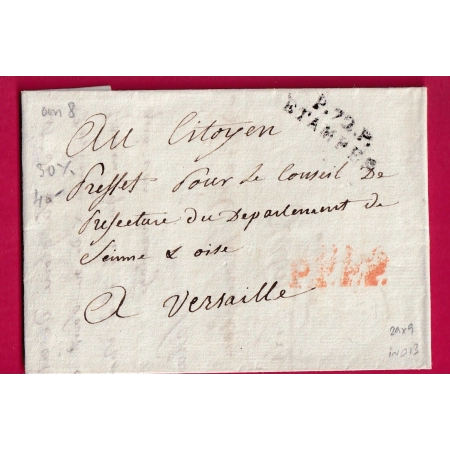 an 8
P.72.P.
ETAMPES
Au Citoyen
30%
40-
Preffet Pour Le Conseil De
Prefecture du Departement de
Seinne & oise
A Versaille
21x9
in013